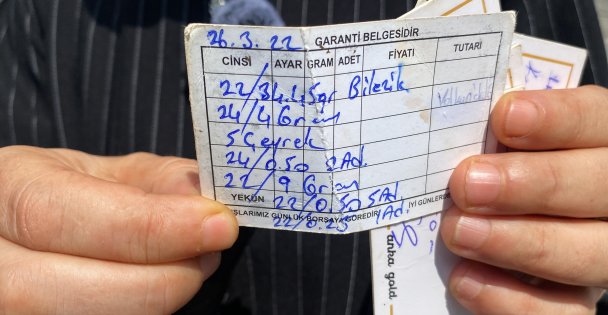 26.3.22 GARANTİ BELGESİDİR
CİNSİ AYAR GRAM ADET FİYATI TUTARI
22/34.45gr Bilezik
24/4 Gram
5 Çeyrek
24/0.50 2 Ad.
22/9 Gram
YEKÜN 22/0.50 5 Ad
GÜNLÜK BORSAYA GÖREDİR İYİ GÜNLERDE
22/0.25 1 Ad.
anka gold